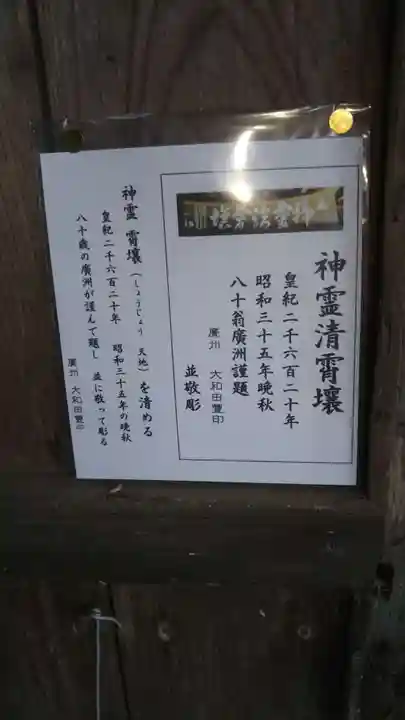 神霊清霄壤
皇紀二千六百二十年
昭和三十五年晩秋
八十翁廣洲謹題
並敬彫
廣州 大和田豊印
神霊清霄壤
神霊 霄壤（しょうじょう 天地）を清める
皇紀二千六百二十年 昭和三十五年の晩秋
八十歳の廣洲が謹んで題し 並に敬って彫る
廣州 大和田豊印